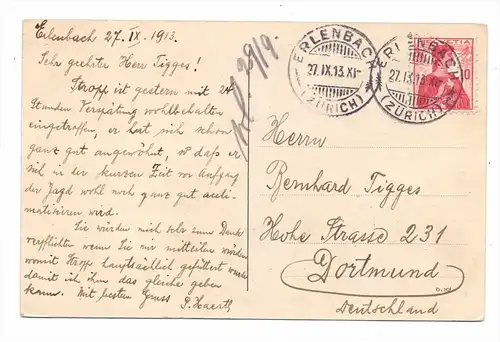 Erlenbach 27. IX. 1913.
Sehr geehrter Herr Tigges!
Stropp ist gestern mit 24
Stunden Verspätung wohlbehalten
eingetroffen, er hat sich schon
ganz gut angewöhnt, so daß er
sich in der kurzen Zeit vor Anfang
der Jagd wohl noch ganz gut accli-
matisieren wird.
Sie würden mich sehr zum Dank
verpflichten wenn Sie mir mitteilen würden
womit Stropp hauptsächlich gefüttert wurde
damit ich ihm das gleiche geben
kann. Mit bestem Gruss
29/9.
ERLENBACH
27.IX.13.XI-
(ZÜRICH)
ERLENBACH
27.IX.13.XI-
(ZÜRICH)
HELVETIA
10
Herrn
Bernhard Tigges
Hohe Strasse 231
Dortmund
Deutschland